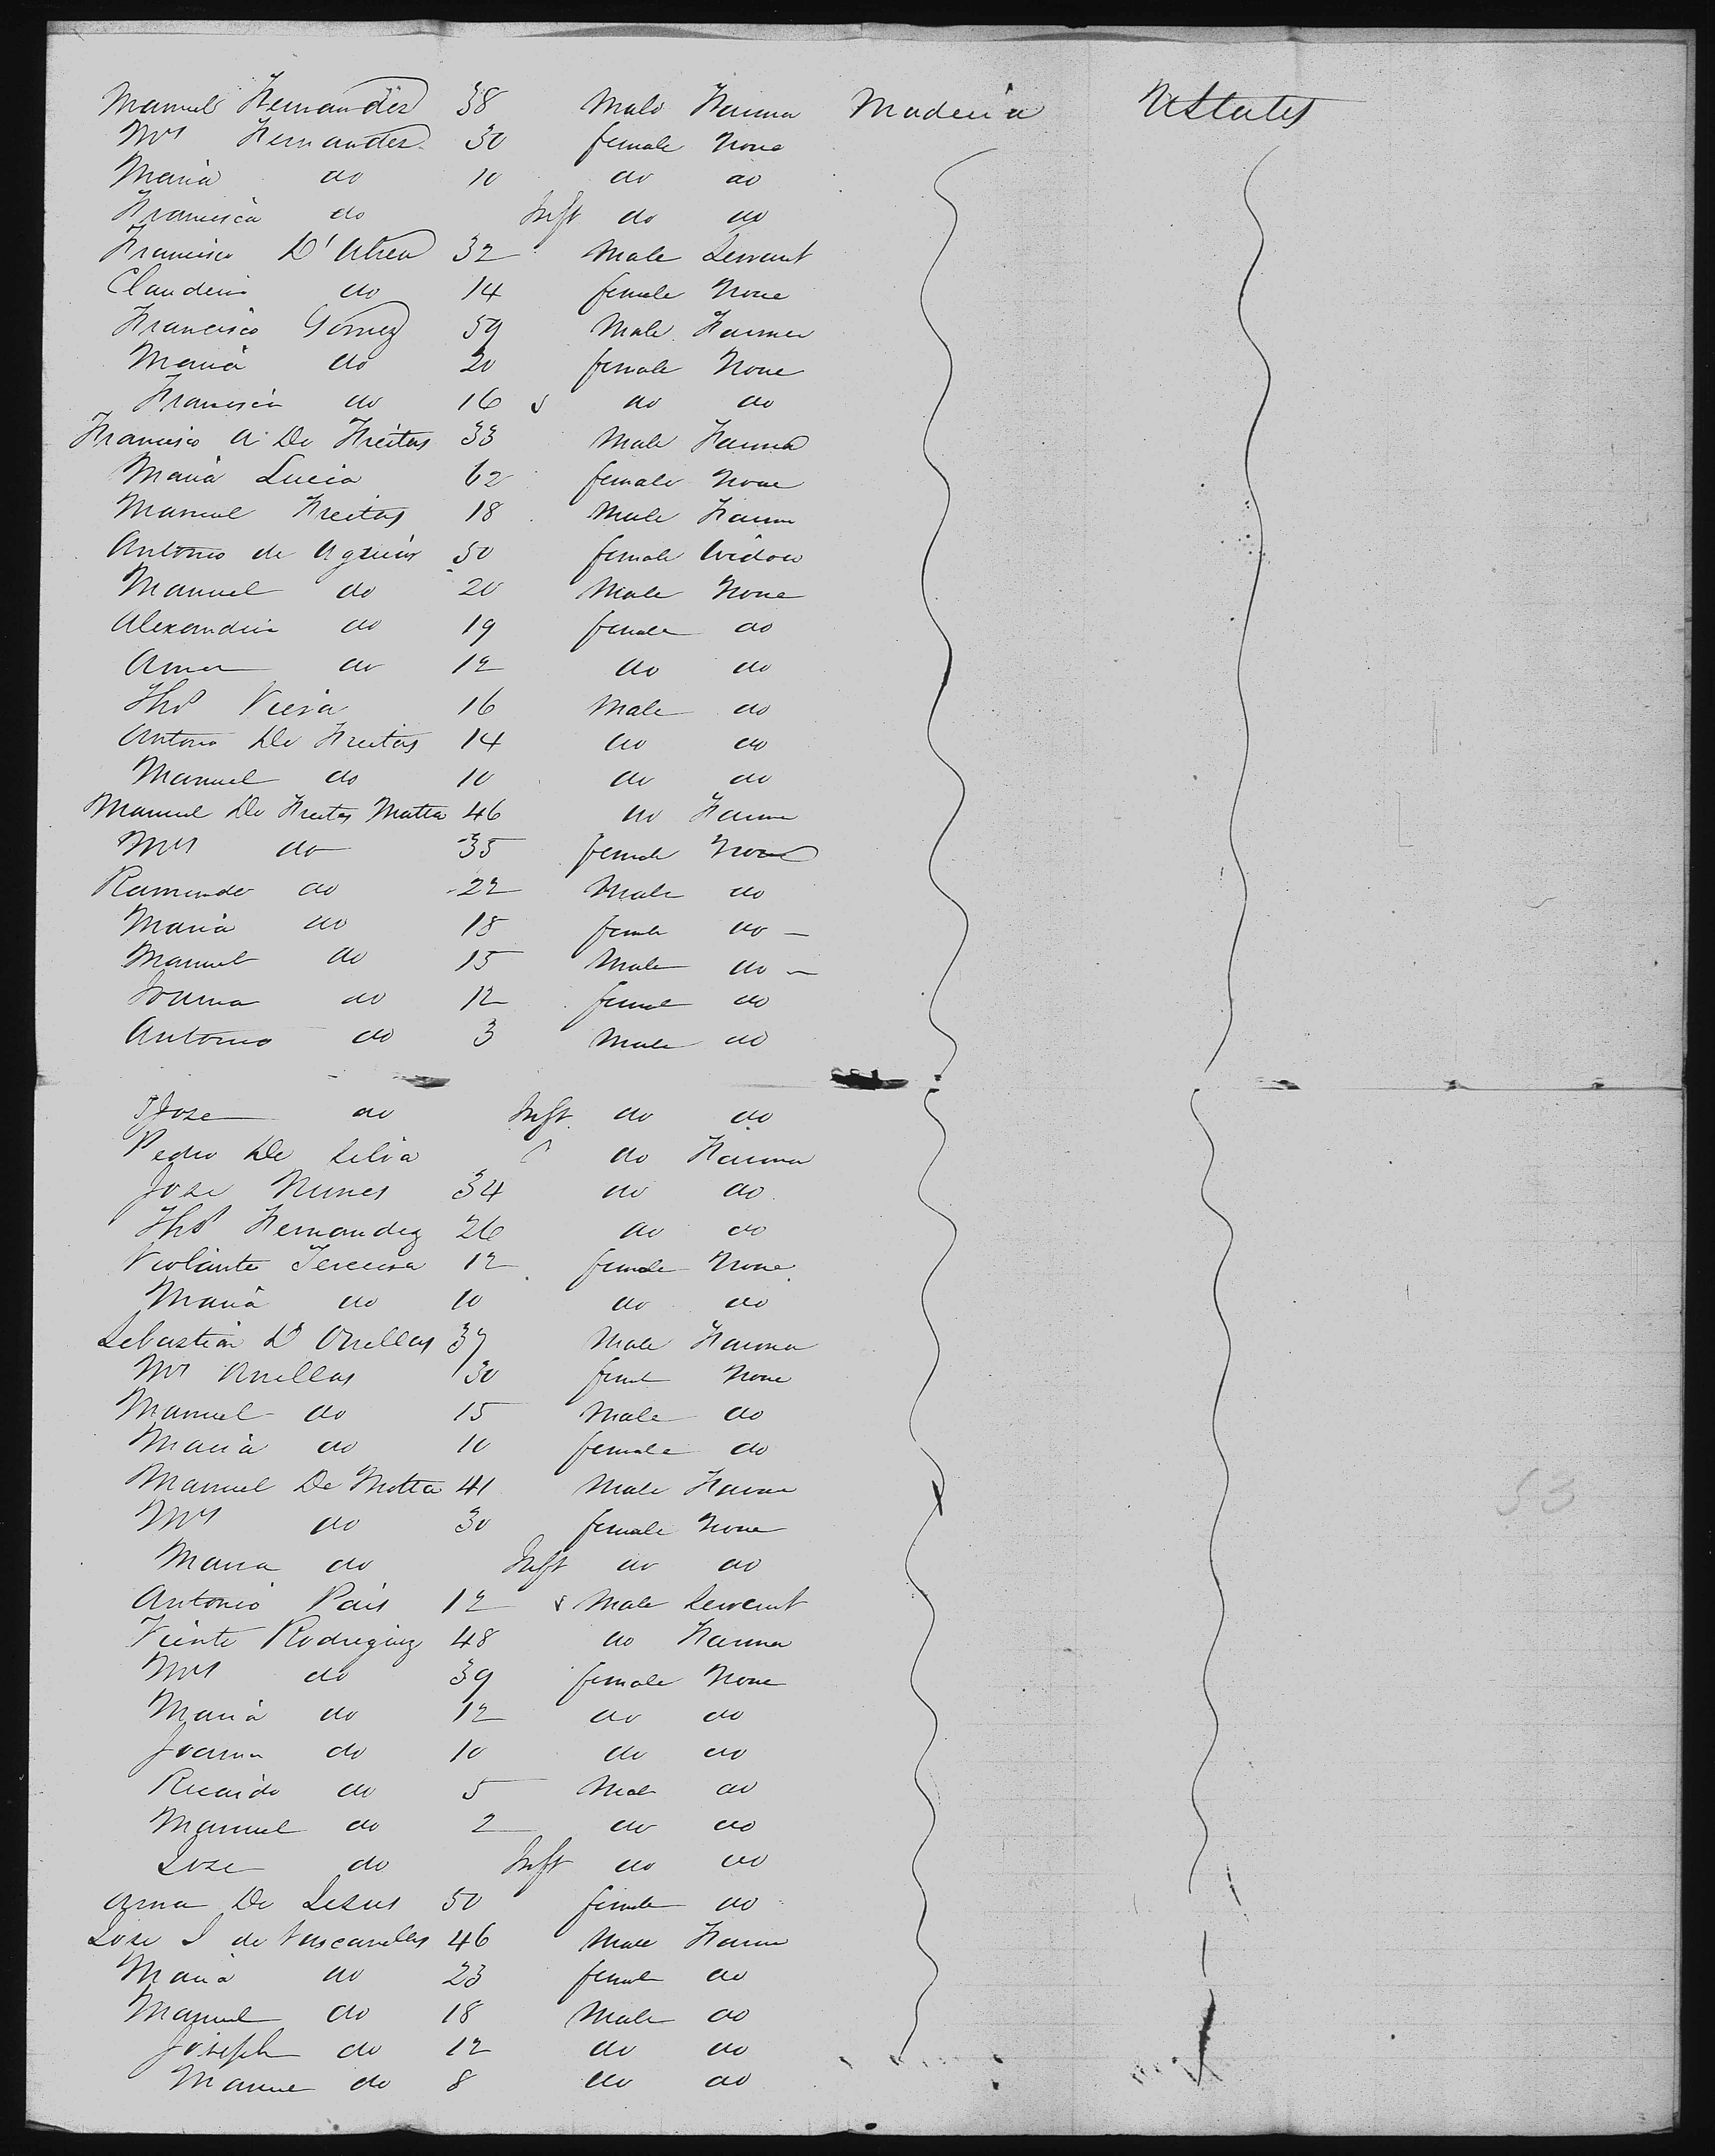 Manuel Hernandez 38 Male Farmer Madeira UStates
Mrs Hernandez 30 female None
Maria do 10 do do
Francisca do Inft do do
Francisco D'Abreo 32 Male Servant
Claudein do 14 female None
Francisco Gomez 59 Male Farmer
Maria do 20 female None
Francisca do 16 do do
Francisco A De Freitas 33 Male Farmer
Maria Lucia 62 female None
Manuel Freitas 18 Male Farmer
Antonio de Aguiar 50 female Widow
Manuel do 20 Male None
Alexandrin do 19 female do
Anna do 12 do do
Thos Viera 16 Male do
Antonio De Freitas 14 do do
Manuel do 10 do do
Manuel De Freitas Matta 46 do Farmer
Mrs do 35 female None
Ramundo do 22 Male do
Maria do 18 female do
Manuel do 15 Male do
Joanna do 12 female do
Antonio do 3 Male do
Jose do Inft do do
Pedro De Silva do Farmer
Jose Nunes 34 do do
Thos Hernandez 26 do do
Violante 12 female None
Maria do 10 do do
Sebastian D Orellas 37 Male Farmer
Mrs Orellas 30 female None
Manuel do 15 Male do
Maria do 10 female do
Manuel De Motta 41 Male Farmer
Mrs do 30 female None
Maria do Inft do do
Antonio Pais 12 Male Servant
Viente Rodriguez 48 do Farmer
Mrs do 39 female None
Maria do 12 do do
Joanna do 10 do do
Ricardo do 5 Male do
Manuel do 2 do do
Jose do Inft do do
Anna De Jesus 50 female do
Jose J de Vascanelles 46 Male Farmer
Maria do 23 female do
Manuel do 18 Male do
Joseph do 12 do do
Manuel do 8 do do
53